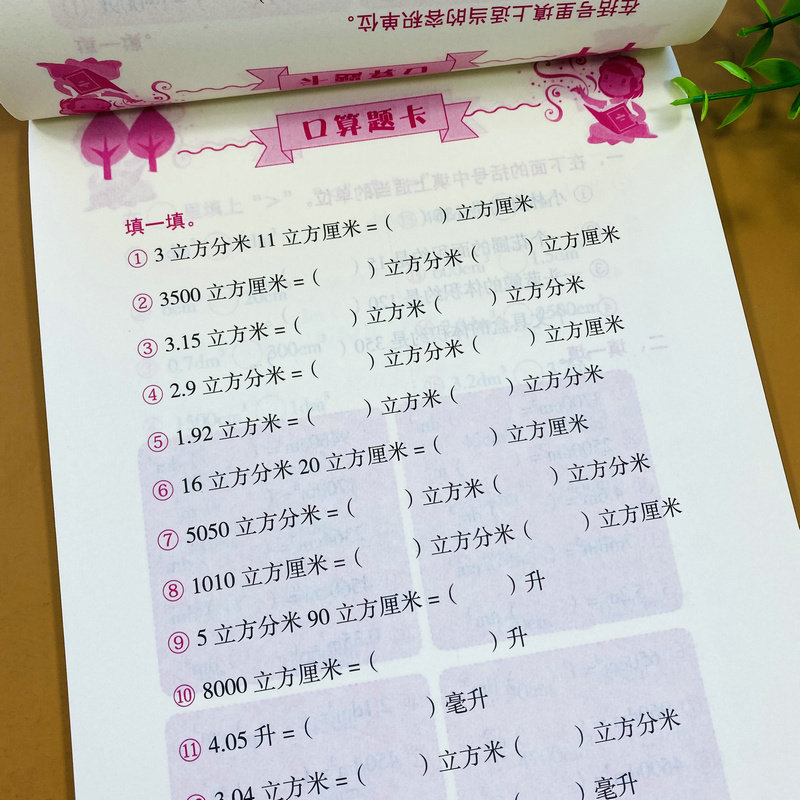 在括号里填上适当的容积单位。
口算题卡
口算题卡
填一填。
① 3 立方分米 11 立方厘米 = ( ) 立方厘米
② 3500 立方厘米 = ( ) 立方分米 ( ) 立方厘米
③ 3.15 立方米 = ( ) 立方米 ( ) 立方分米
④ 2.9 立方分米 = ( ) 立方分米 ( ) 立方厘米
⑤ 1.92 立方米 = ( ) 立方米 ( ) 立方分米
⑥ 16 立方分米 20 立方厘米 = ( ) 立方厘米
⑦ 5050 立方分米 = ( ) 立方米 ( ) 立方分米
⑧ 1010 立方厘米 = ( ) 立方分米 ( ) 立方厘米
⑨ 5 立方分米 90 立方厘米 = ( ) 升
⑩ 8000 立方厘米 = ( ) 升
⑪ 4.05 升 = ( ) 毫升
3.04 立方米 = ( ) 立方米 ( ) 立方分米
) 毫升